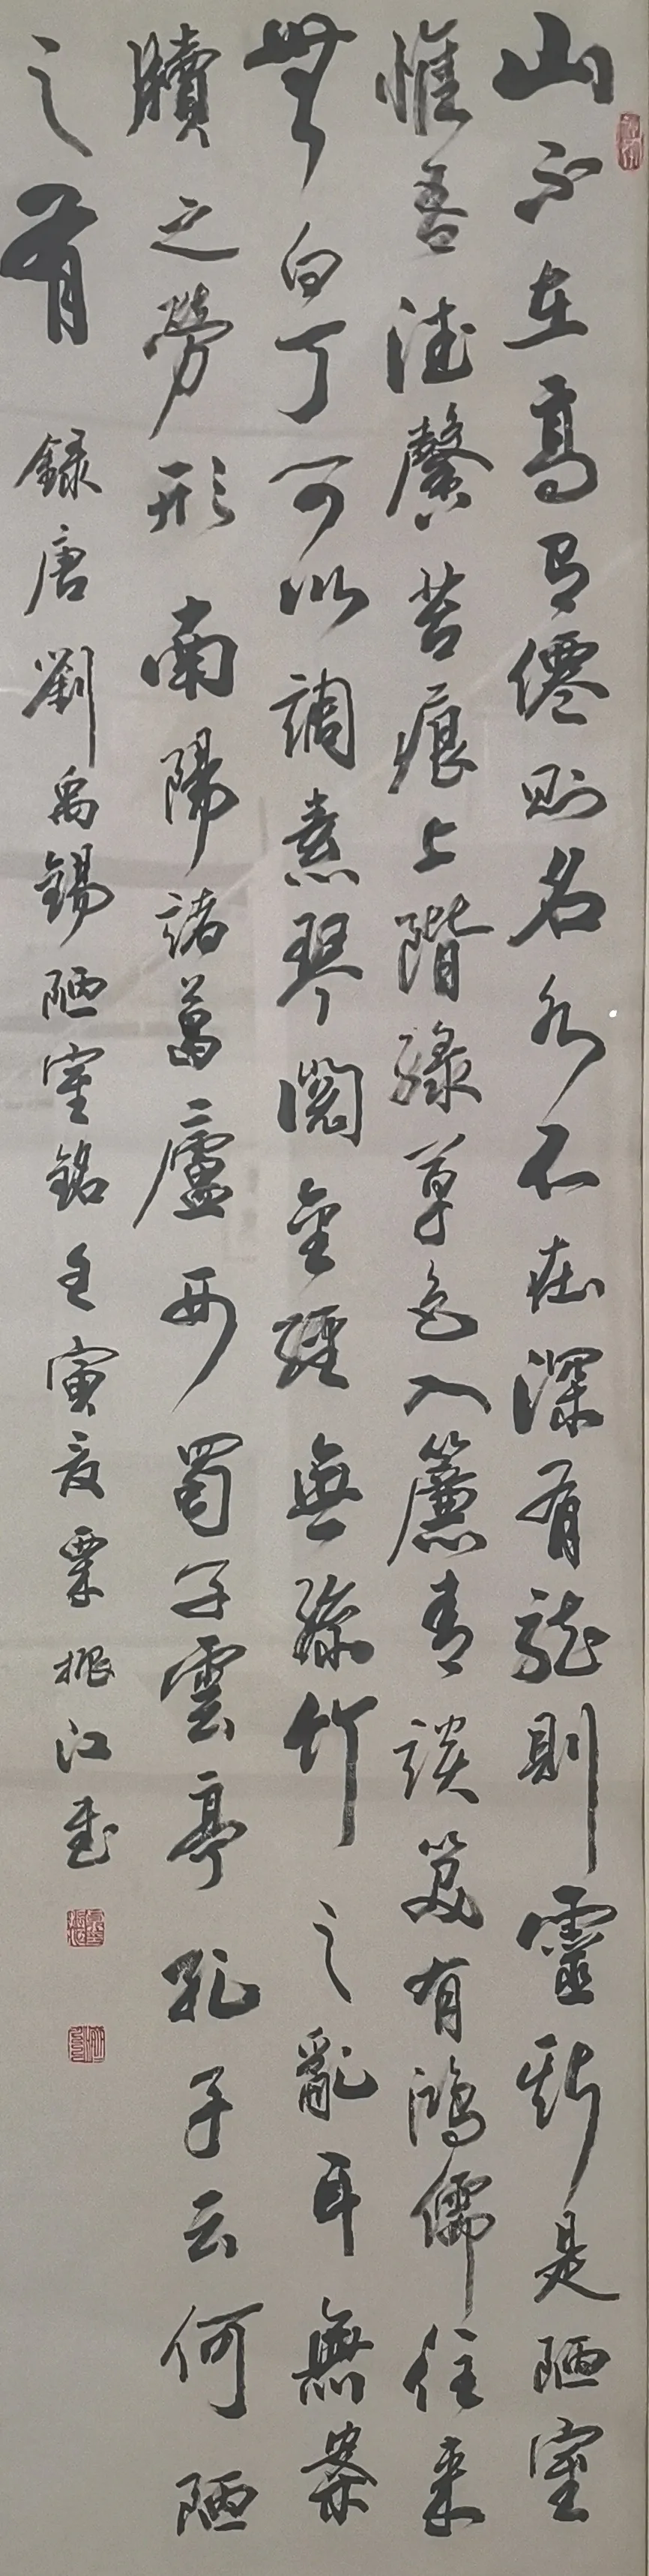 山不在高有僊則名水不在深有龍則靈斯是陋室
惟吾德馨苔痕上階緑草色入簾青談笑有鴻儒往來
無白丁可以調素琴閱金經無絲竹之亂耳無案
牘之勞形南陽諸葛廬西蜀子雲亭孔子云何陋
之有 錄唐劉禹錫陋室銘壬寅夏栗振江書